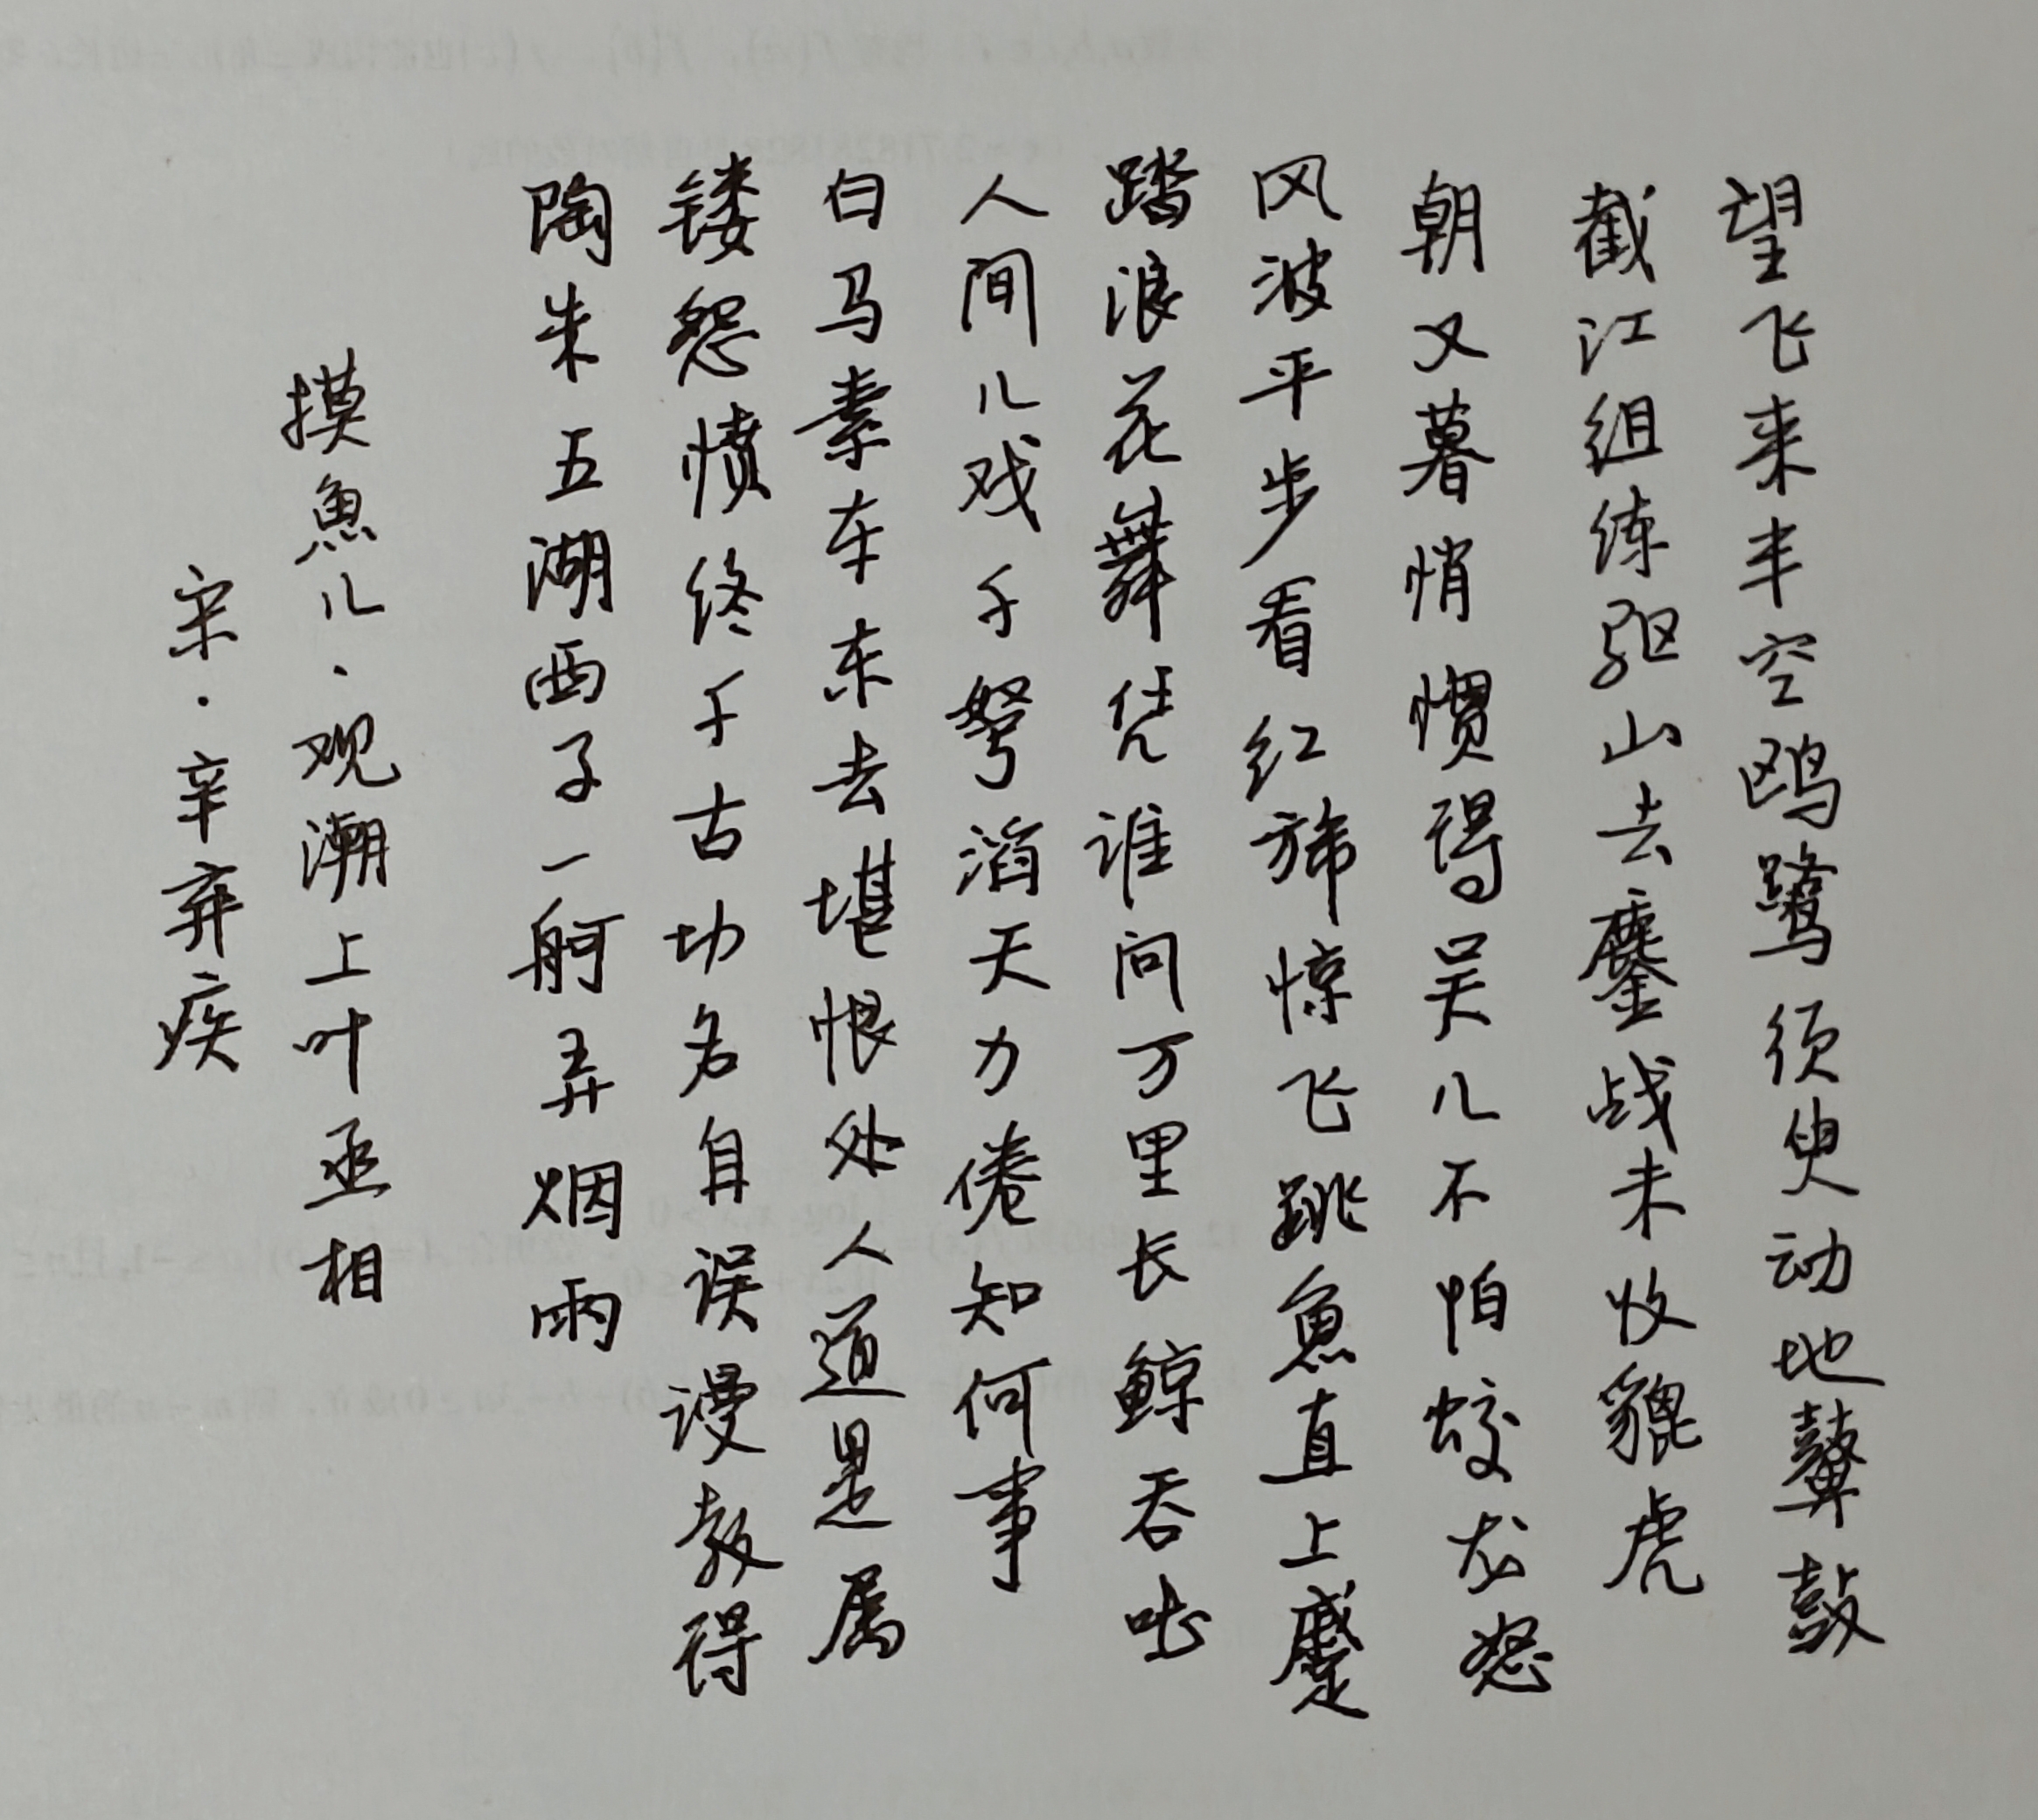 望飞来半空鸥鹭须臾动地鼙鼓
截江组练驱山去鏖战未收貔虎
朝又暮悄惯得吴儿不怕蛟龙怒
风波平步看红旆惊飞跳鱼直上蹙
踏浪花舞凭谁问万里长鲸吞吐
人间儿戏千弩滔天力倦知何事
白马素车东去堪恨处人道是属
镂怨愤终千古功名自误谩教得
陶朱五湖西子一舸弄烟雨
摸鱼儿·观潮上叶丞相
宋·辛弃疾